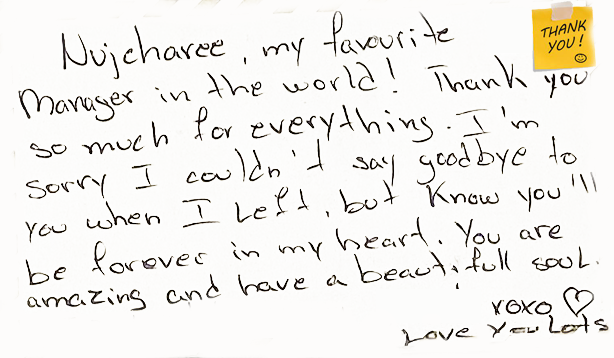 Nujcharee, my favourite
Manager in the world! Thank you
so much for everything. I'm
sorry I couldn't say goodbye to
you when I Left, but Know you'll
be forever in my heart. You are
amazing and have a beautifull soul.
xoxo ♡
Love You Lots
THANK
YOU!